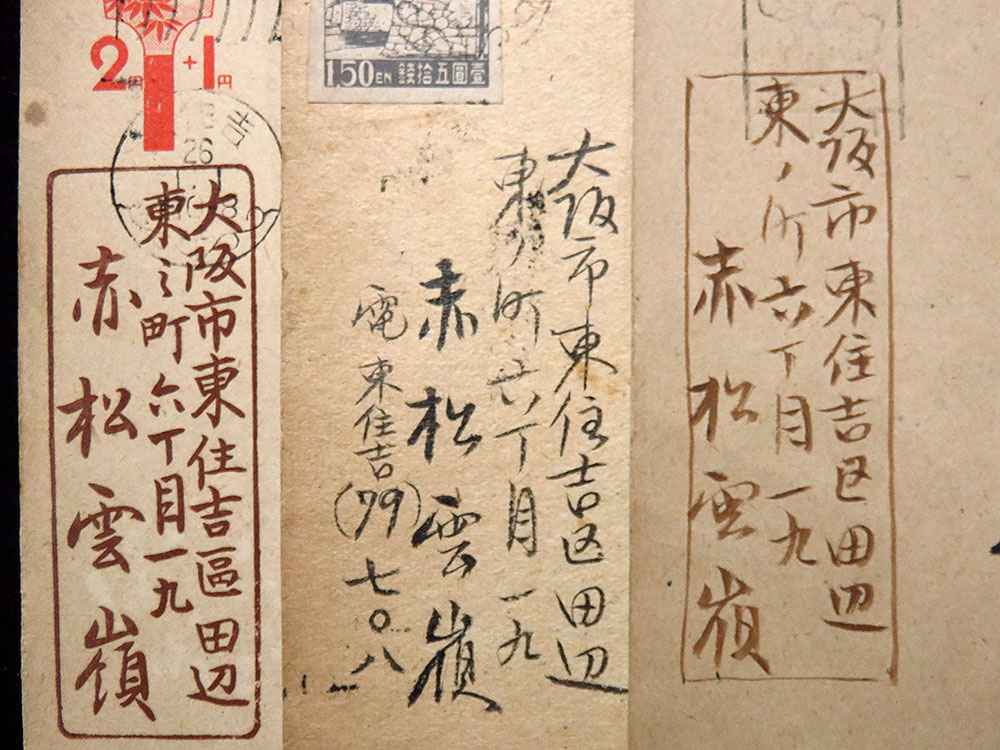 2円+1円
吉
26
大阪市東住吉區田辺
東之町六丁目一九
赤松雲嶺
1.50EN 錢拾五圓壹
大阪市東住吉区田辺
東ノ町六丁目一九
赤松雲嶺
電東住吉(79)七〇八
大阪市東住吉区田辺
東ノ町六丁目一九
赤松雲嶺